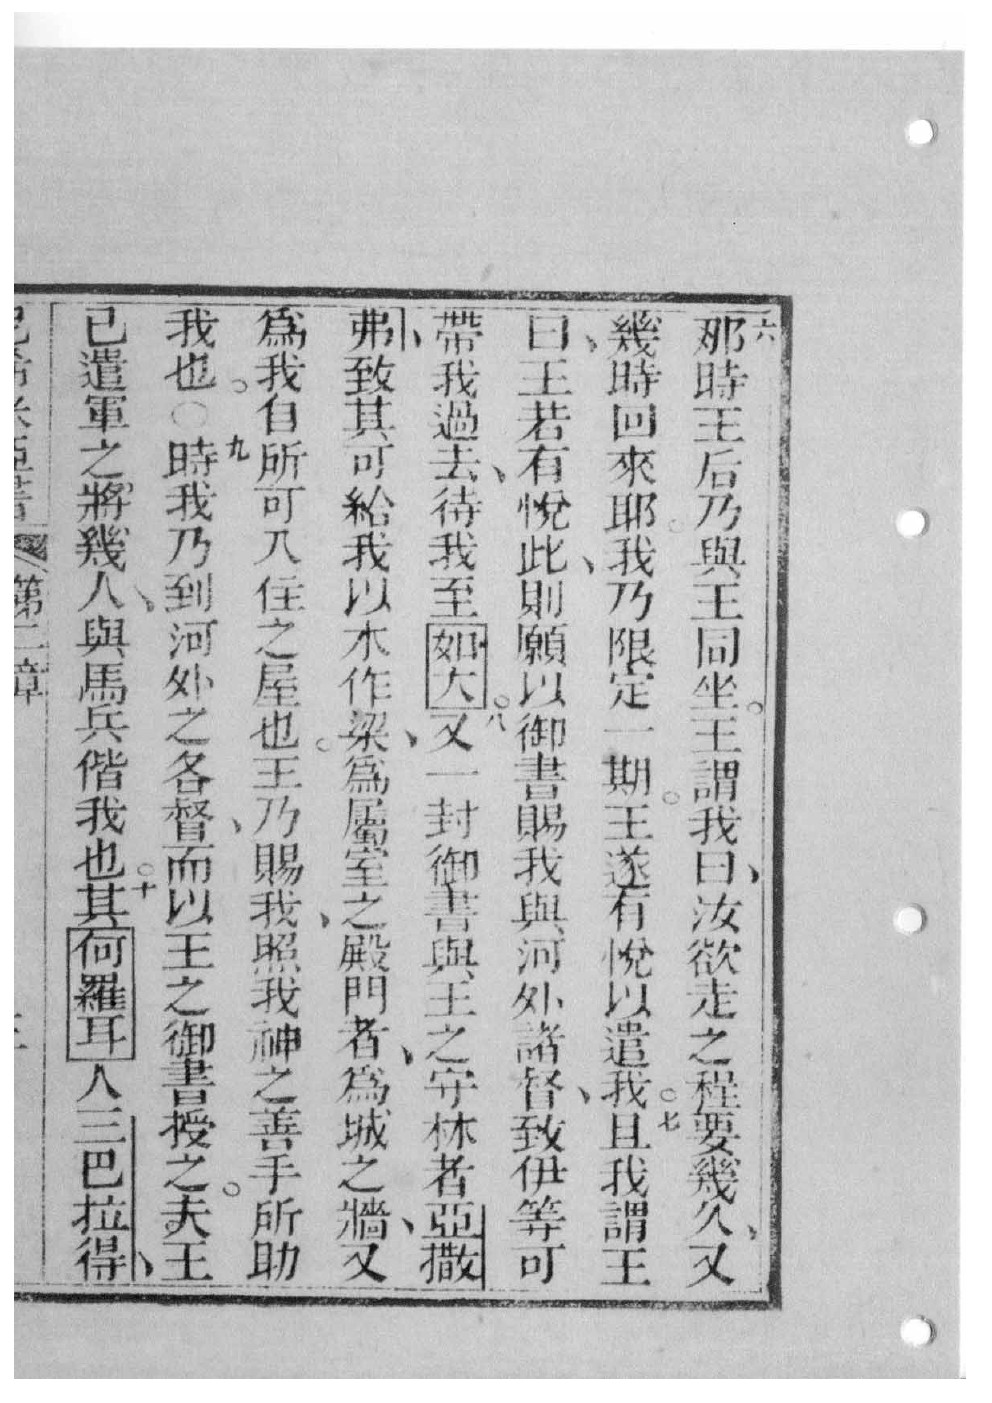 六那時王后乃與王同坐。王謂我曰、汝欲走之程要幾久、又
幾時回來耶。我乃限定一期。王遂有悅以遣我。七且我謂王
曰、王若有悅此、則願以御書賜我與河外諸督、致伊等可
帶我過去、待我至如大。八又一封御書與王之守林者亞撒
弗、致其可給我以木作梁、爲屬室之殿門者、爲城之牆、又
爲我自所可入住之屋也。王乃賜我、照我神之善手所助
我也。○九時我乃到河外之各督、而以王之御書授之。夫王
已遣軍之將幾人、與馬兵偕我也。十其何羅耳人三巴拉得、
尼希米亞書 第二章